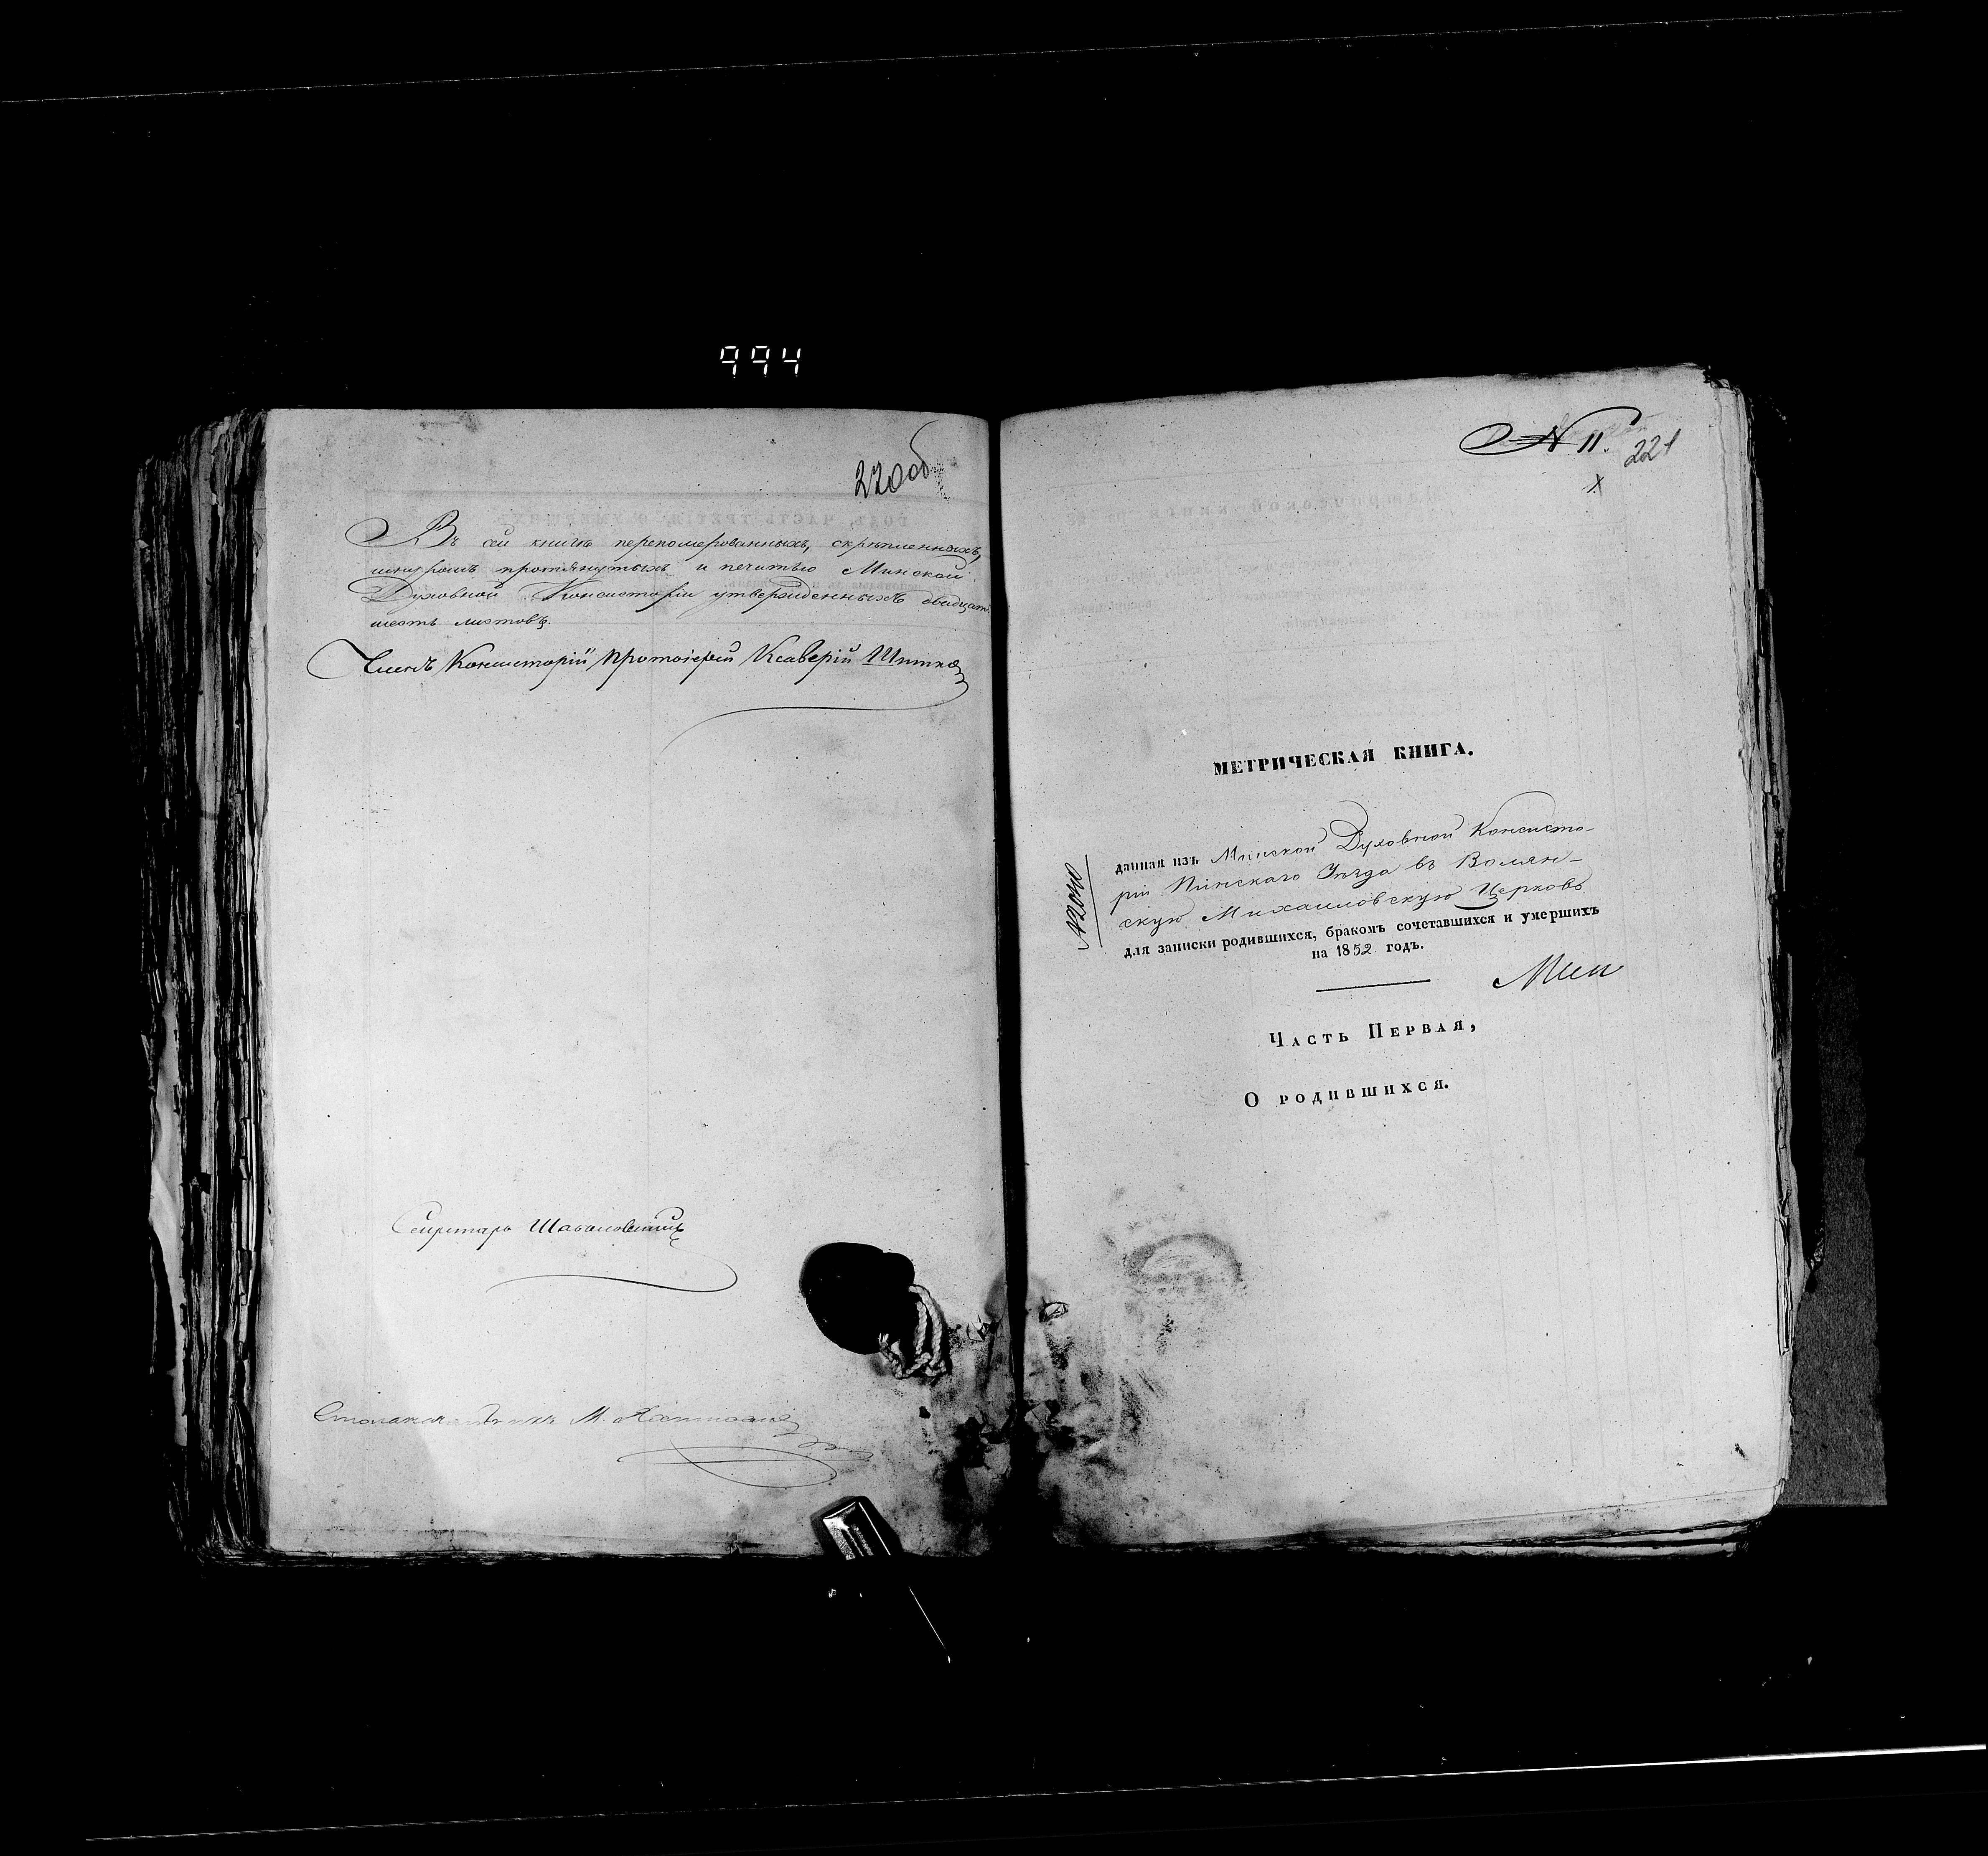 994
220об
Въ сей книгѣ перенумерованныхъ, скрѣпленныхъ,
шнуромъ протянутыхъ и печатью Минской
Духовной Консисторіи утвержденныхъ двадцать
шесть листовъ.
Членъ Консисторіи Протоіерей Ксаверій
Секретарь
Столоначальникъ М.
N 11.
221
х
МЕТРИЧЕСКАЯ КНИГА.
данная изъ Минской Духовной Консисто-
ріи Пинскаго Уѣзда въ
скую Михайловскую Церковь
для записки родившихся, бракомъ сочетавшихся и умершихъ
на 1852 годъ.
Мин
Часть Первая,
О родившихся.